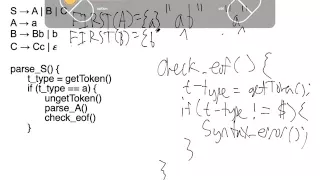 S → A | B | C
A → Aa | a
B → Bb | b
C → Cc | ϵ
FIRST(A)={a}
FIRST(B)={b
"ab"
"a"
parse_S() {
t_type = getToken()
if (t_type == a) {
ungetToken()
parse_A()
check_eof()
}
check_eof() {
t-type = getToken();
if(t-type != $){
Syntax_error();
}
}